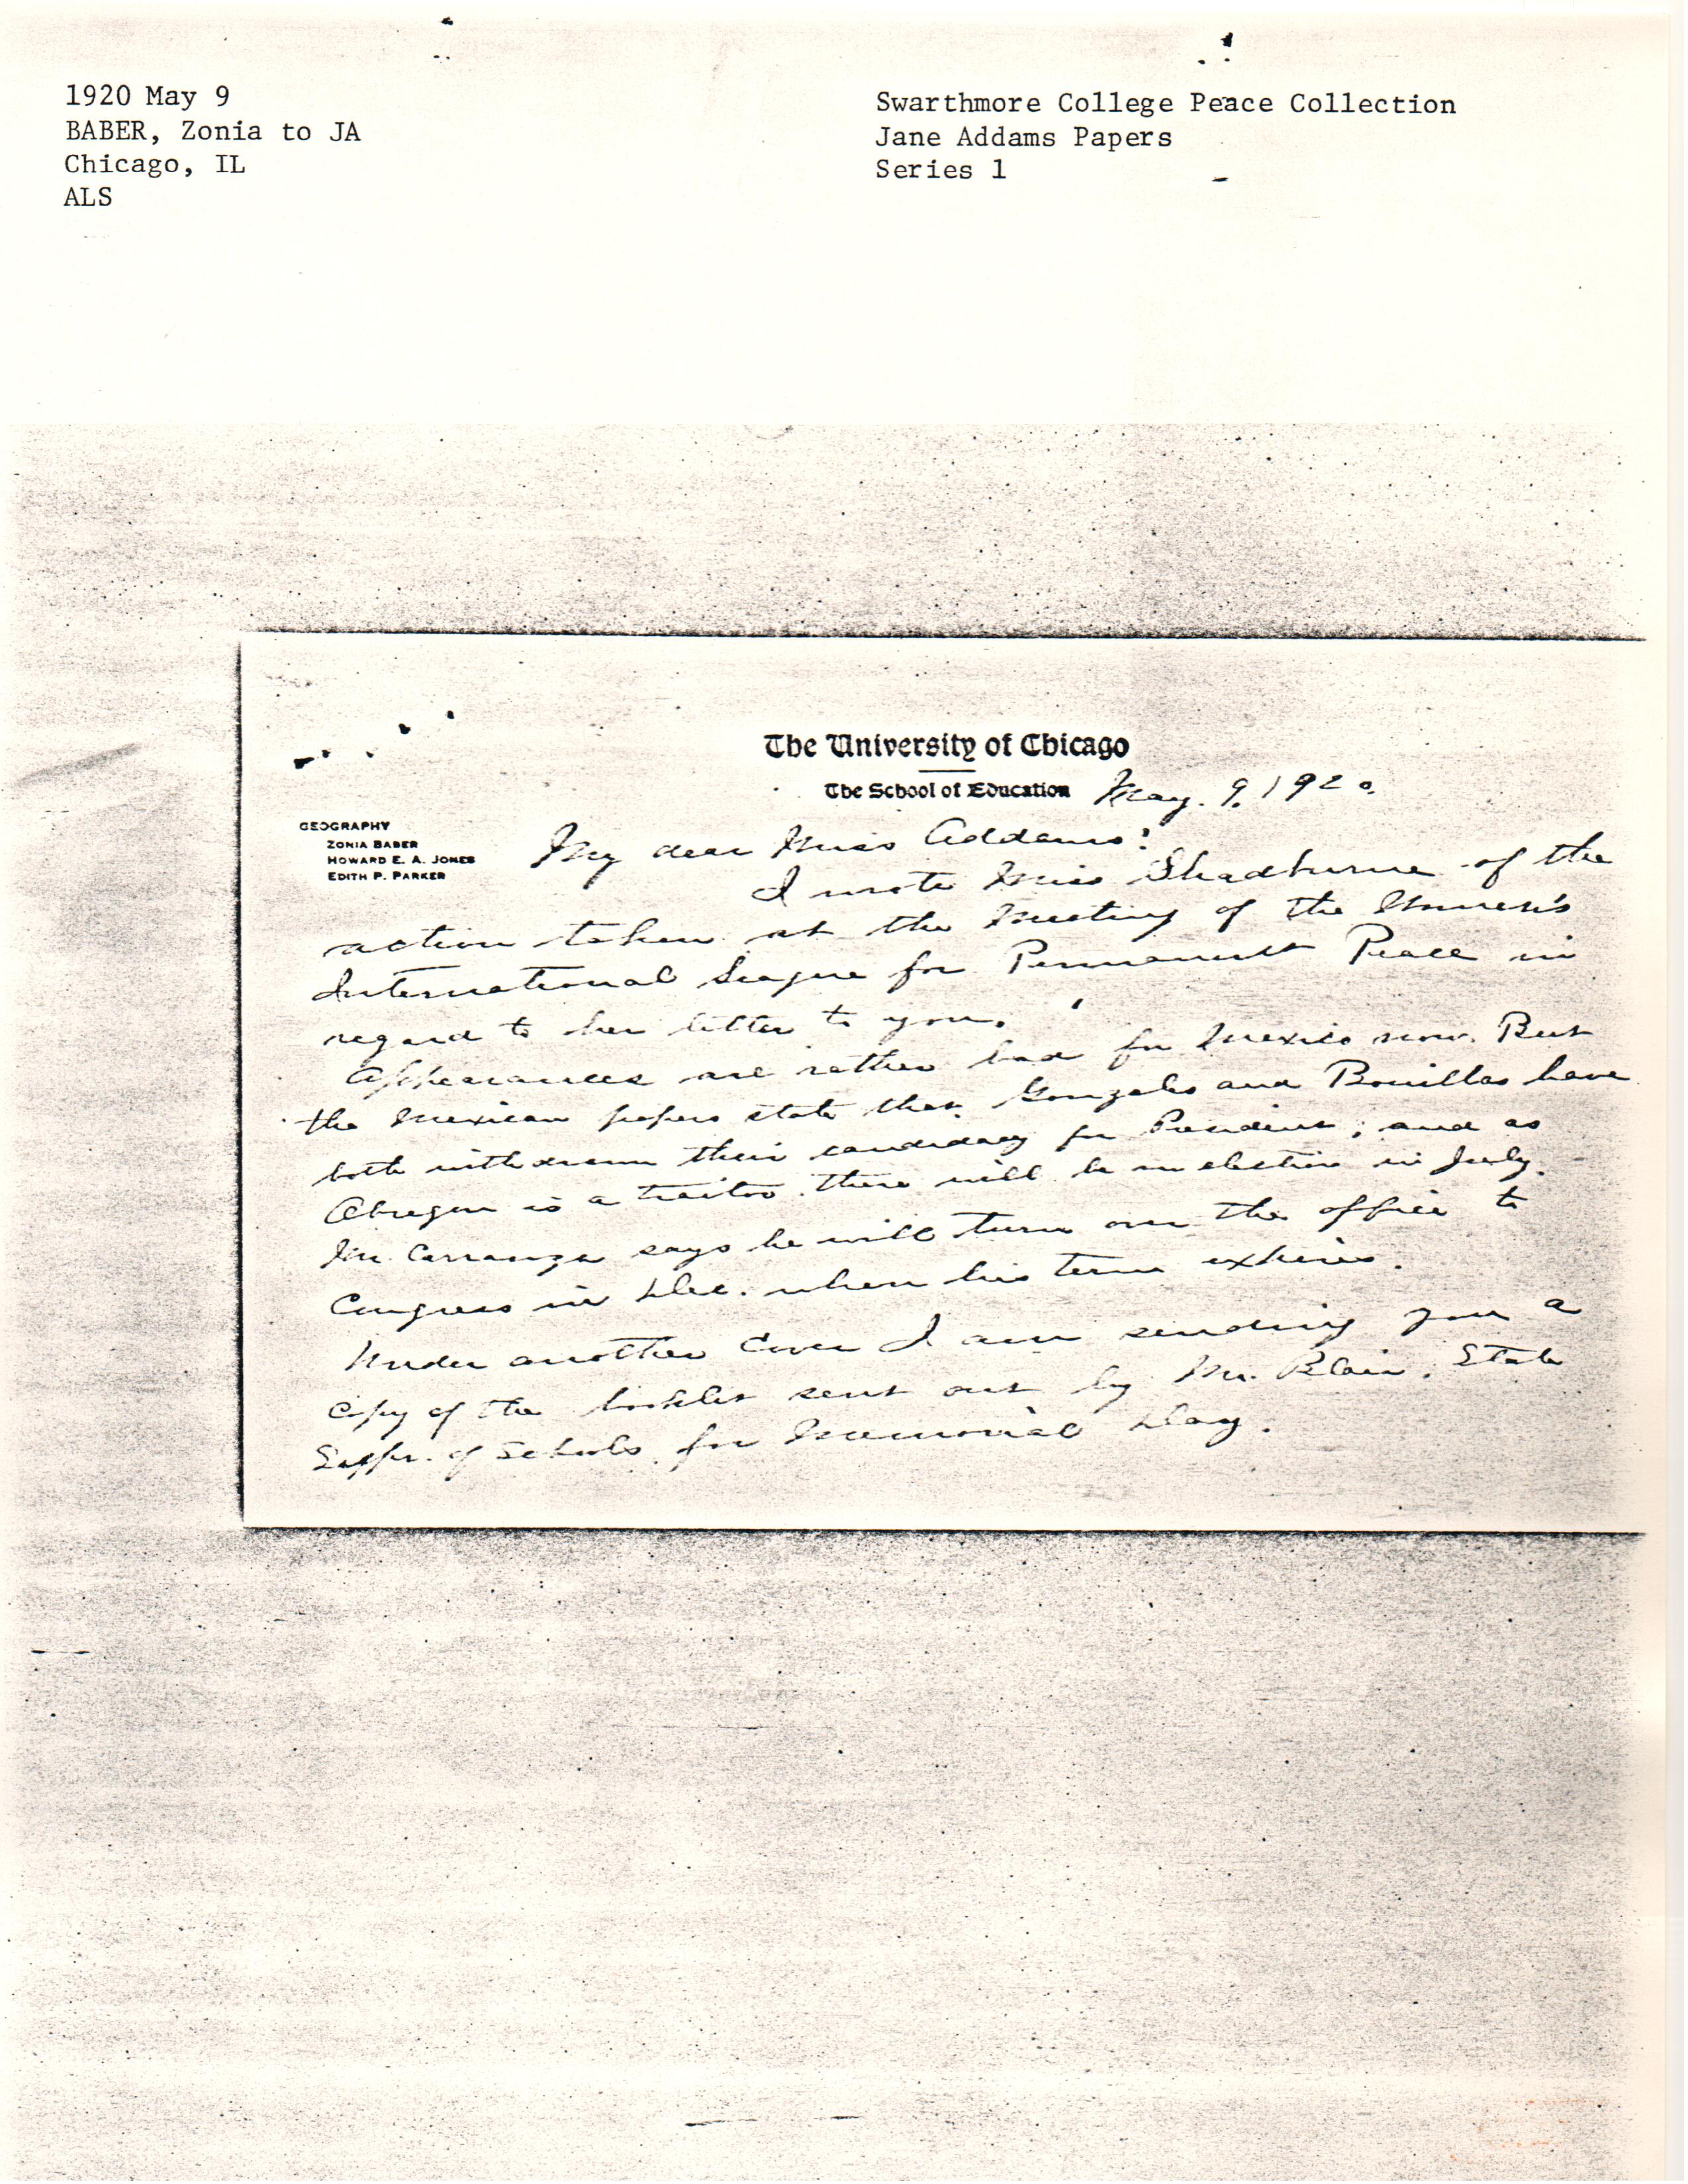 1920 May 9
BABER, Zonia to JA
Chicago, IL
ALS
Swarthmore College Peace Collection
Jane Addams Papers
Series 1
The University of Chicago
The School of Education
May. 9, 1920.
GEOGRAPHY
ZONIA BABER
HOWARD E. A. JONES
EDITH P. PARKER
My dear Miss Addams:
I wrote Miss Shadburne of the
action taken at the Meeting of the Women's
International League for Permanent Peace in
regard to her letter to you.
Appearances are rather bad for Mexico now. But
the Mexican papers state that Gonzales and Bonillas have
both withdrawn their candidacy for President; and as
Obregon is a traitor there will be no election in July.
Mr. Carranza says he will turn over the office to
Congress in Dec. when his term expires.
Under another cover I am sending you a
copy of the booklet sent out by Mr. Blair, State
Supr. of Schools for Memorial Day.